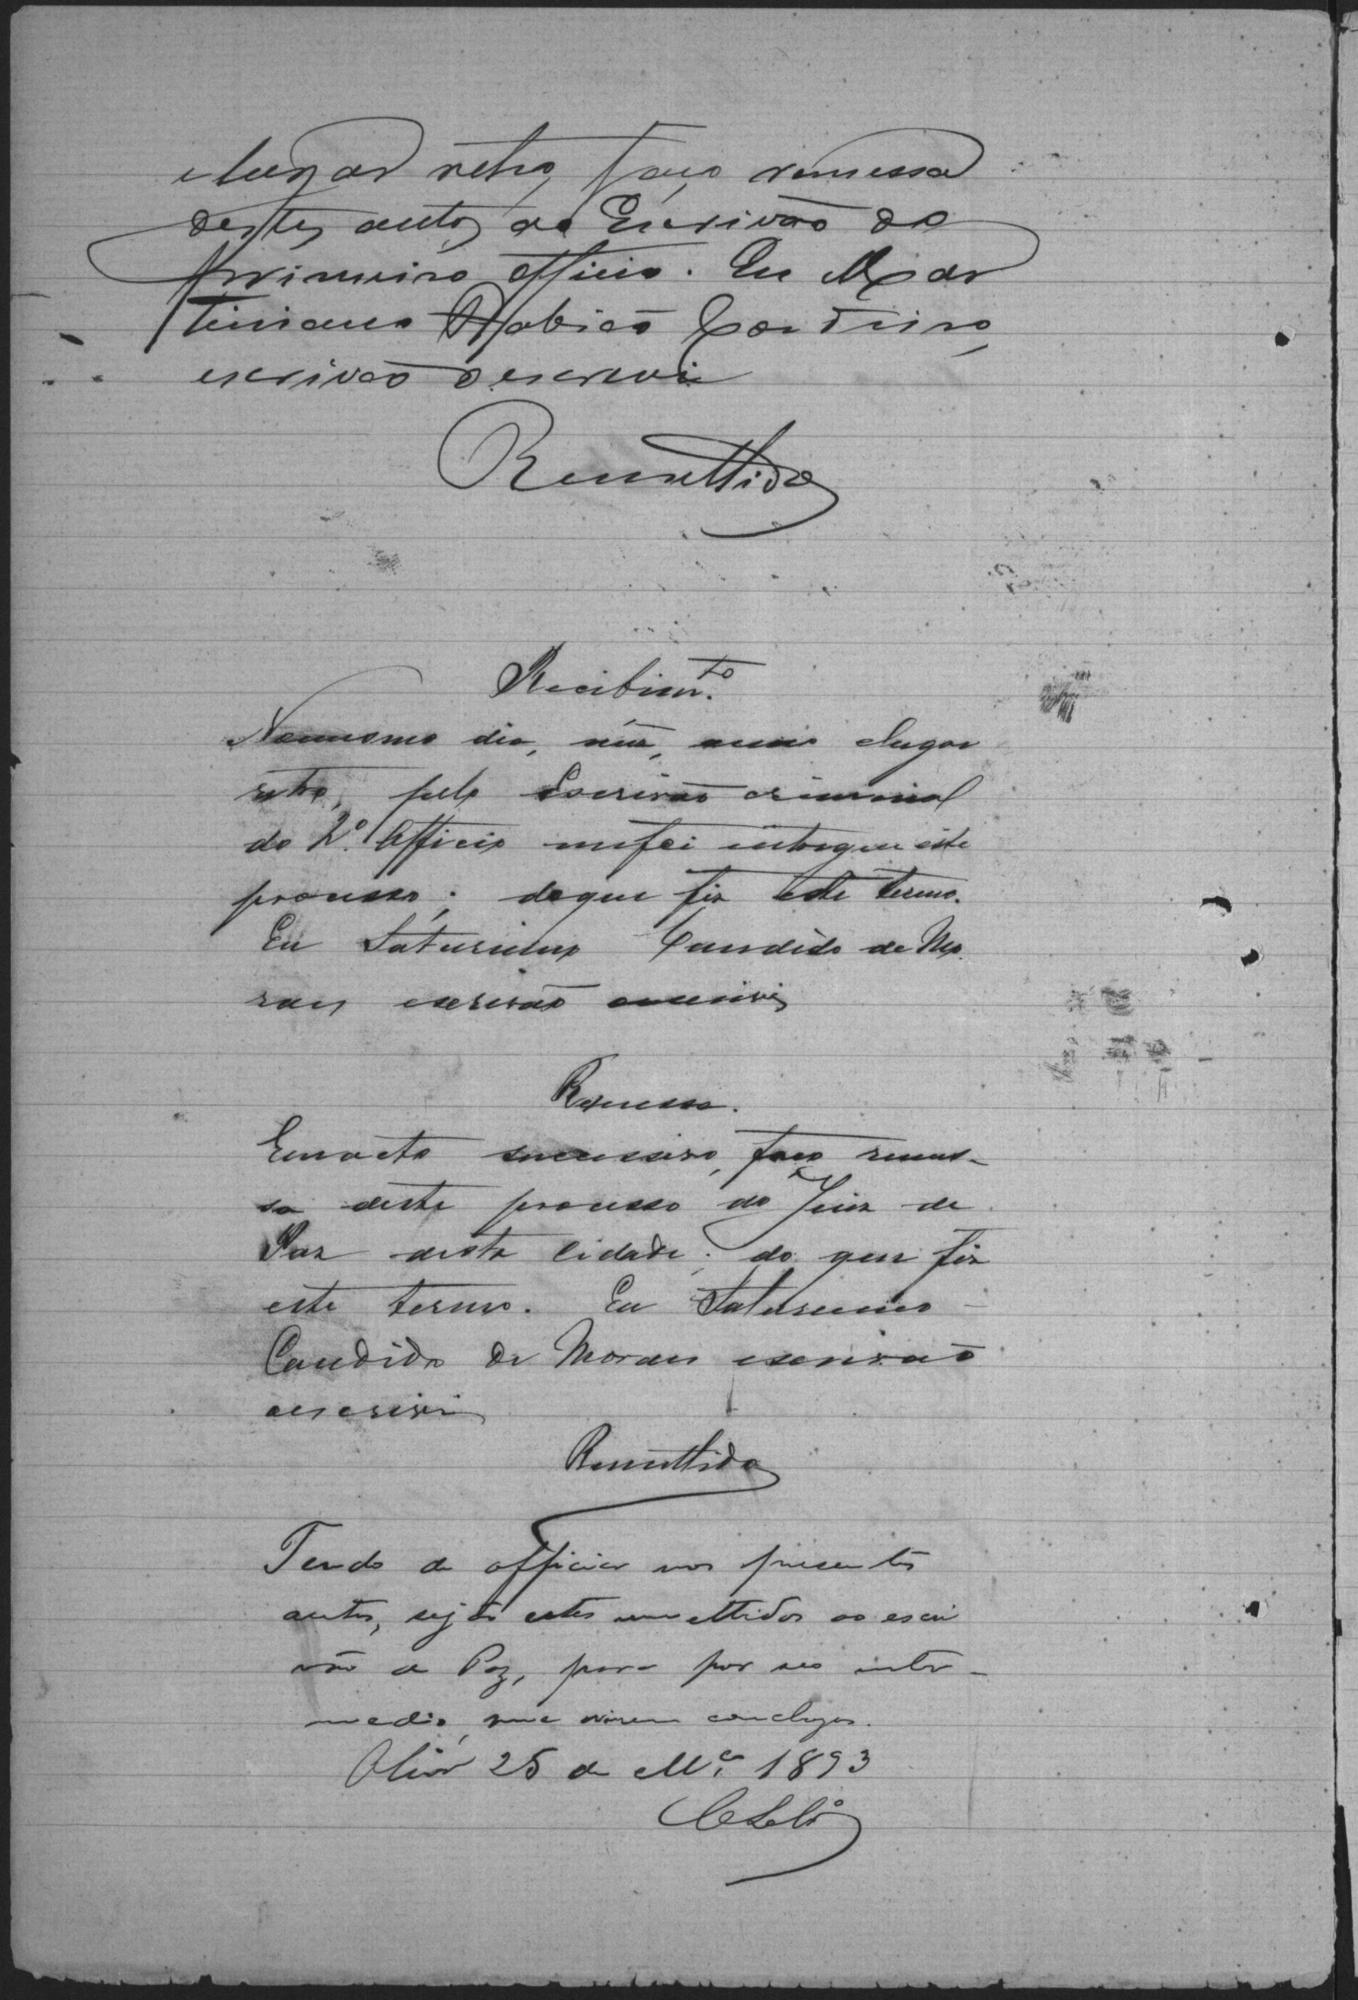 e lugar retro, faço remessa
destes autos ao Escrivão do
primeiro officio. Eu Mar
tiniano Rabicão Cordeiro,
escrivão o escrevi
Remettido
Recibim.to
No mesmo dia, mez, anno e lugar
retro, pelo Escrivão criminal
do 2.º Officio me foi entregue este
processo; do que fiz este termo.
Eu Saturnino Candido de Mo
raes escrivão o escrivi
Remessa.
Em acto successivo, faço remes-
sa deste processo ao Juiz de
Paz desta Cidade; do que fiz
este termo. Eu Saturnino
Candido de Moraes escrivão
o escrivi
Remettido
Tendo de officiar nos presentes
autos, sejão estes remettidos ao escri
vão de Paz, para por seo inter-
medio, me virem conclusos.
25 de M.ço 1893